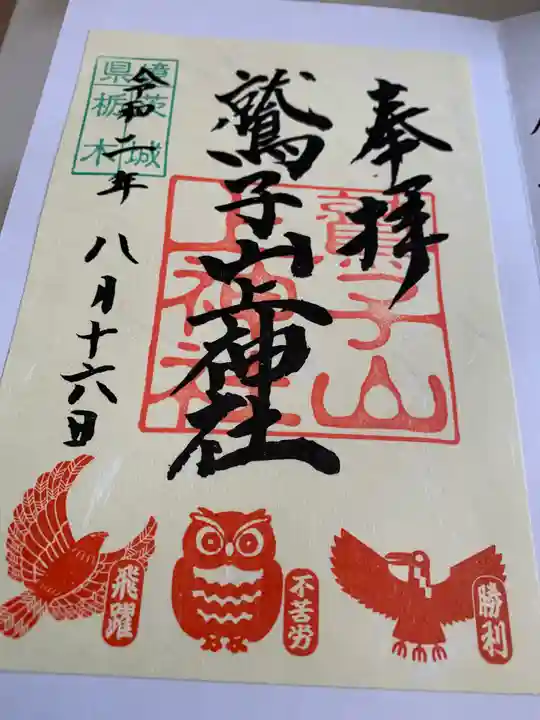 奉拝
鷲子山
上神社
鷲子山上神社
茨城
県境
栃木
令和二年八月十六日
飛躍
不苦労
勝利